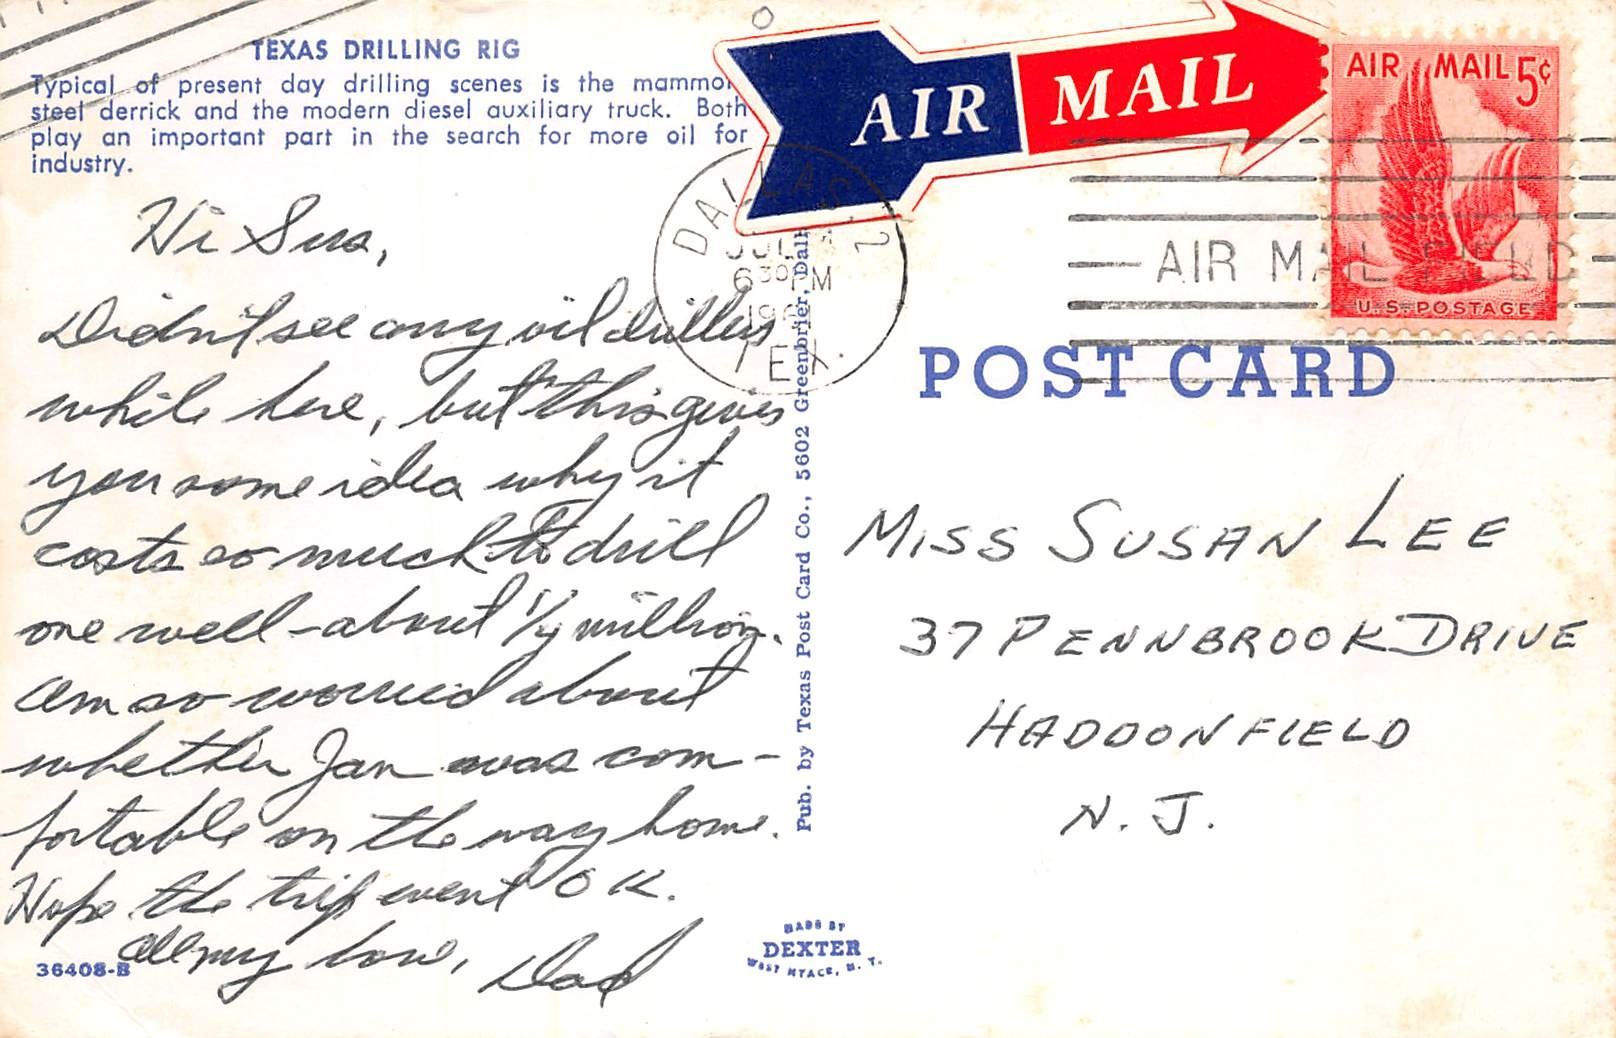 TEXAS DRILLING RIG
Typical of present day drilling scenes is the mammo
steel derrick and the modern diesel auxiliary truck. Both
play an important part in the search for more oil for
industry.
AIR MAIL
AIR MAIL 5¢
U.S. POSTAGE
DALLAS 2
JUL
6 30 PM
196
TEX.
AIR MAIL FIELD
POST CARD
Hi Sus,
Didn't see any oil drillers
while here, but this gives
you some idea why it
costs so much to drill
one well - about 1/4 million.
Am so worried about
whether Jan was com-
fortable on the way home.
Hope the trip went OK.
All my love, Dad
36408-B
Pub. by Texas Post Card Co., 5602 Greenbrier, Dall
MADE BY
DEXTER
WEST NYACK, N. Y.
MISS SUSAN LEE
37 PENNBROOK DRIVE
HADDONFIELD
N. J.